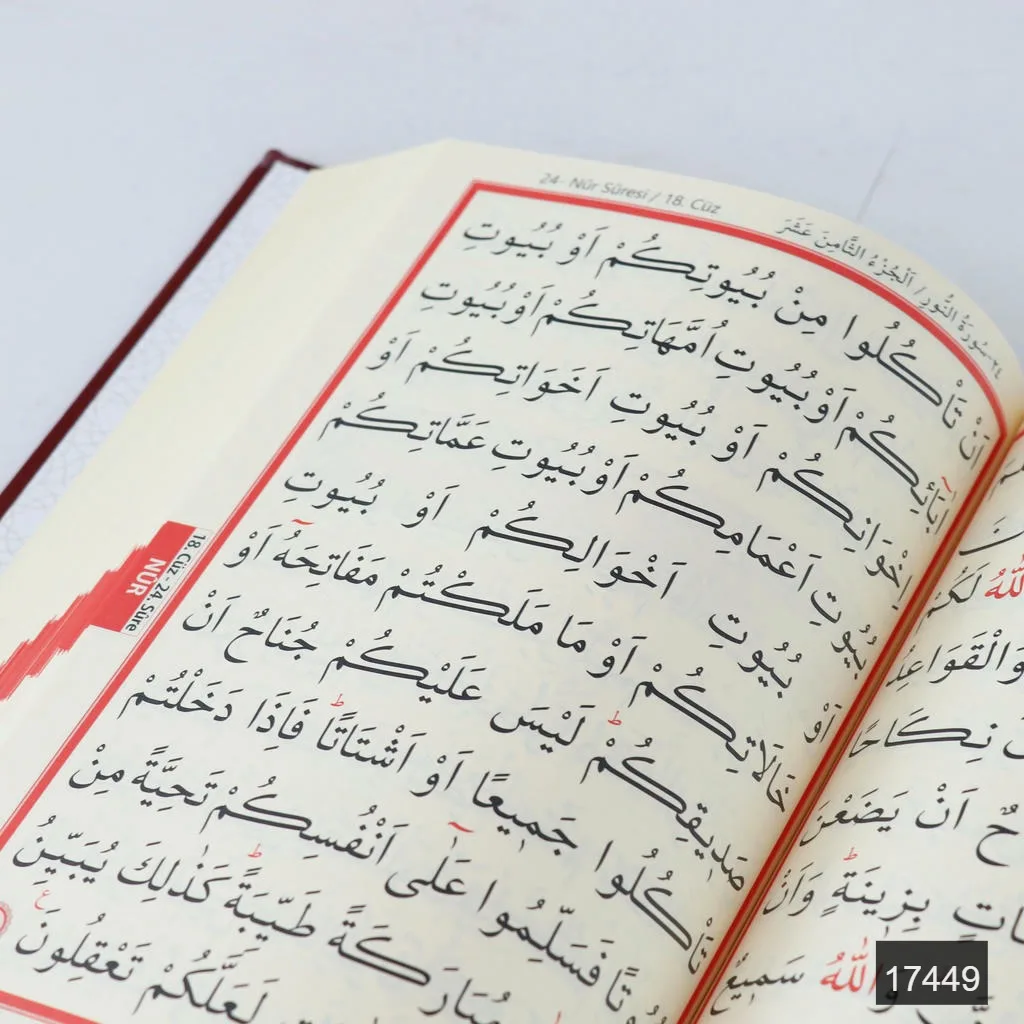 24- Nûr Sûresi / 18. Cüz
٢٤-سُورَةُ النُّورِ / اَلْجُزْءُ الثَّامِنَ عَشَرَ
اَنْ تَأْكُلُوا مِنْ بُيُوتِكُمْ اَوْ بُيُوتِ
اٰبَٓائِكُمْ اَوْ بُيُوتِ اُمَّهَاتِكُمْ اَوْ بُيُوتِ
اِخْوَانِكُمْ اَوْ بُيُوتِ اَخَوَاتِكُمْ اَوْ
بُيُوتِ اَعْمَامِكُمْ اَوْ بُيُوتِ عَمَّاتِكُمْ
اَوْ بُيُوتِ اَخْوَالِكُمْ اَوْ بُيُوتِ
خَالَاتِكُمْ اَوْ مَا مَلَكْتُمْ مَفَاتِحَهُٓ اَوْ
صَدٖيقِكُمْؕ لَيْسَ عَلَيْكُمْ جُنَاحٌ اَنْ
تَأْكُلُوا جَمٖيعًا اَوْ اَشْتَاتًاؕ فَاِذَا دَخَلْتُمْ
بُيُوتًا فَسَلِّمُوا عَلٰٓى اَنْفُسِكُمْ تَحِيَّةً مِنْ
مُبَارَكَةً طَيِّبَةًؕ كَذٰلِكَ يُبَيِّنُ
لَعَلَّكُمْ تَعْقِلُونَ ع
18.Cüz - 24.Sûre
NÛR
اللّٰهُ لَكُمُ
وَالْقَوَاعِدُ
نِكَاحًا
اَنْ يَضَعْنَ
بِزٖينَةٍؕ وَاَنْ
وَاللّٰهُ سَمٖيعٌ
17449